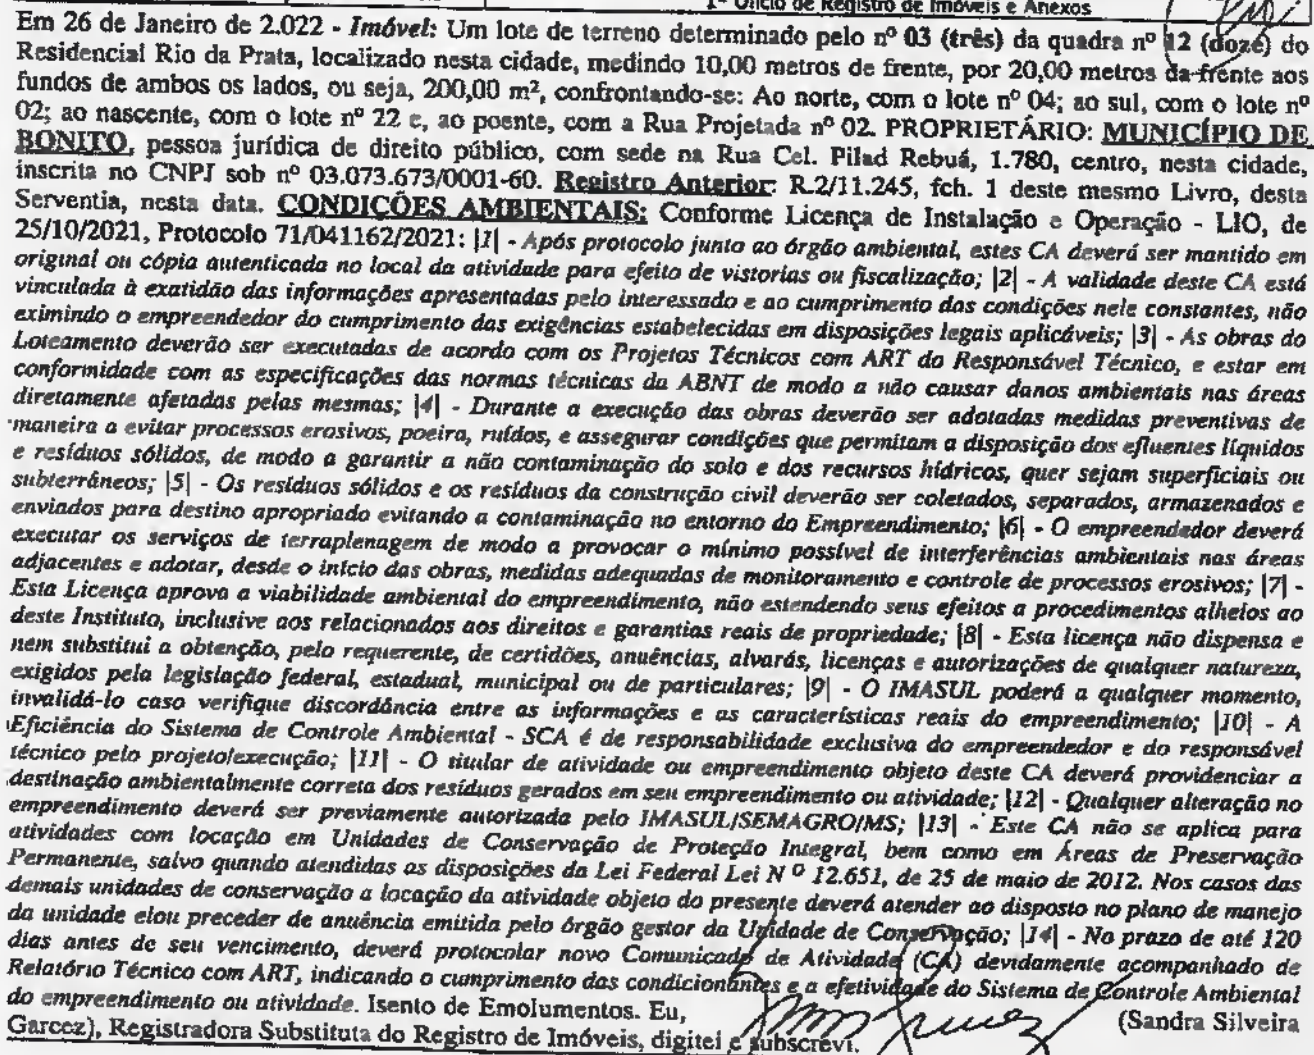 1º Ofício de Registro de Imóveis e Anexos
Em 26 de Janeiro de 2.022 - Imóvel: Um lote de terreno determinado pelo nº 03 (três) da quadra nº 12 (doze) do
Residencial Rio da Prata, localizado nesta cidade, medindo 10,00 metros de frente, por 20,00 metros da frente aos
fundos de ambos os lados, ou seja, 200,00 m², confrontando-se: Ao norte, com o lote nº 04; ao sul, com o lote nº
02; ao nascente, com o lote nº 22 e, ao poente, com a Rua Projetada nº 02. PROPRIETÁRIO: MUNICÍPIO DE
BONITO, pessoa jurídica de direito público, com sede na Rua Cel. Pilad Rebuá, 1.780, centro, nesta cidade,
inscrita no CNPJ sob nº 03.073.673/0001-60. Registro Anterior: R.2/11.245, fch. 1 deste mesmo Livro, desta
Serventia, nesta data. CONDIÇÕES AMBIENTAIS: Conforme Licença de Instalação e Operação - LIO, de
25/10/2021, Protocolo 71/041162/2021: |1| - Após protocolo junto ao órgão ambiental, estes CA deverá ser mantido em
original ou cópia autenticada no local da atividade para efeito de vistorias ou fiscalização; |2| - A validade deste CA está
vinculada à exatidão das informações apresentadas pelo interessado e ao cumprimento das condições nele constantes, não
eximindo o empreendedor do cumprimento das exigências estabelecidas em disposições legais aplicáveis; |3| - As obras do
Loteamento deverão ser executadas de acordo com os Projetos Técnicos com ART do Responsável Técnico, e estar em
conformidade com as especificações das normas técnicas da ABNT de modo a não causar danos ambientais nas áreas
diretamente afetadas pelas mesmas; |4| - Durante a execução das obras deverão ser adotadas medidas preventivas de
maneira a evitar processos erosivos, poeira, ruídos, e assegurar condições que permitam a disposição dos efluentes líquidos
e resíduos sólidos, de modo a garantir a não contaminação do solo e dos recursos hídricos, quer sejam superficiais ou
subterrâneos; |5| - Os resíduos sólidos e os resíduos da construção civil deverão ser coletados, separados, armazenados e
enviados para destino apropriado evitando a contaminação no entorno do Empreendimento; |6| - O empreendedor deverá
executar os serviços de terraplenagem de modo a provocar o mínimo possível de interferências ambientais nas áreas
adjacentes e adotar, desde o início das obras, medidas adequadas de monitoramento e controle de processos erosivos; |7| -
Esta Licença aprova a viabilidade ambiental do empreendimento, não estendendo seus efeitos a procedimentos alheios ao
deste Instituto, inclusive aos relacionados aos direitos e garantias reais de propriedade; |8| - Esta licença não dispensa e
nem substitui a obtenção, pelo requerente, de certidões, anuências, alvarás, licenças e autorizações de qualquer natureza,
exigidos pela legislação federal, estadual, municipal ou de particulares; |9| - O IMASUL poderá a qualquer momento,
invalidá-lo caso verifique discordância entre as informações e as características reais do empreendimento; |10| - A
Eficiência do Sistema de Controle Ambiental - SCA é de responsabilidade exclusiva do empreendedor e do responsável
técnico pelo projeto/execução; |11| - O titular de atividade ou empreendimento objeto deste CA deverá providenciar a
destinação ambientalmente correta dos resíduos gerados em seu empreendimento ou atividade; |12| - Qualquer alteração no
empreendimento deverá ser previamente autorizada pelo IMASUL/SEMAGRO/MS; |13| - Este CA não se aplica para
atividades com locação em Unidades de Conservação de Proteção Integral, bem como em Áreas de Preservação
Permanente, salvo quando atendidas as disposições da Lei Federal Lei N º 12.651, de 25 de maio de 2012. Nos casos das
demais unidades de conservação a locação da atividade objeto do presente deverá atender ao disposto no plano de manejo
da unidade e/ou preceder de anuência emitida pelo órgão gestor da Unidade de Conservação; |14| - No prazo de até 120
dias antes de seu vencimento, deverá protocolar novo Comunicado de Atividade (CA) devidamente acompanhado de
Relatório Técnico com ART, indicando o cumprimento das condicionantes e a efetividade do Sistema de Controle Ambiental
do empreendimento ou atividade. Isento de Emolumentos. Eu, (Sandra Silveira
Garcez), Registradora Substituta do Registro de Imóveis, digitei e subscrevi.